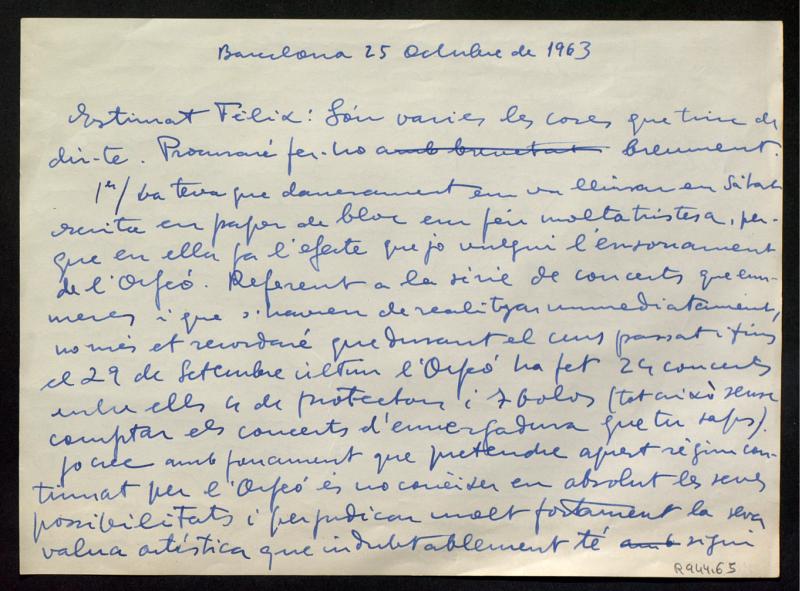 Barcelona 25 Octubre de 1963
Estimat Fèlix: Són varies les coses que tinc de
dir-te. Procuraré fer-ho amb brevetat breument.
1er/ La teva que darrerament em va lliurar en Sàbat
escrita en paper de bloc em feu molta tristesa, per-
que en ella fa l'efecte que jo vulgui l'ensorrament
de l'Orfeó. Referent a la sèrie de concerts que enu-
meres i que s'havien de realitzar immediatament,
només et recordaré que durant el curs passat i fins
el 29 de Setembre últim l'Orfeó ha fet 24 concerts
entre ells 4 de protectors i 7 bolos (tot això sense
comptar els concerts d'envergadura que tu saps).
Jo crec amb fonament que pretendre aquest règim con-
tinuat per l'Orfeó és no conèixer en absolut les seves
possibilitats i perjudicar molt fostament la seva
valua artística que indubtablement té amb sigui
R944.65